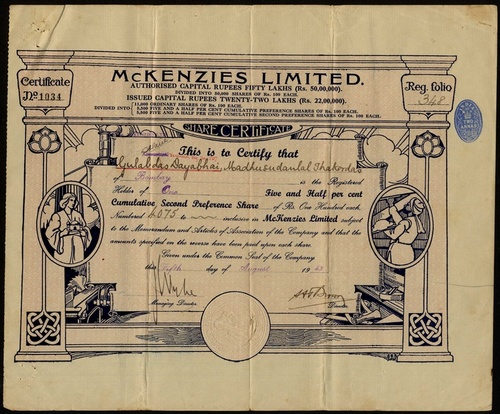 McKENZIES LIMITED.
AUTHORISED CAPITAL RUPEES FIFTY LAKHS (Rs. 50,00,000).
DIVIDED INTO 50,000 SHARES OF Rs. 100 EACH.
ISSUED CAPITAL RUPEES TWENTY-TWO LAKHS (Rs. 22,00,000).
DIVIDED INTO
11,000 ORDINARY SHARES OF Rs. 100 EACH.
5,500 FIVE AND A HALF PER CENT CUMULATIVE PREFERENCE SHARES OF Rs. 100 EACH.
5,500 FIVE AND A HALF PER CENT CUMULATIVE SECOND PREFERENCE SHARES OF Rs. 100 EACH.
Certificate
No. 1034
Reg. folio
348
SHARE CERTIFICATE
This is to Certify that
Gulabdas Dayabhai, Madhusudanlal Thakordas
of Bombay is the Registered
Holder of One Five and Half per cent
Cumulative Second Preference Share of Rs One Hundred each,
Numbered 6075 to inclusive in McKenzies Limited subject
to the Memorandum and Articles of Association of the Company and that the
amounts specified on the reverse have been paid upon each share.
Given under the Common Seal of the Company
this Fifth day of August 19
Managing Director